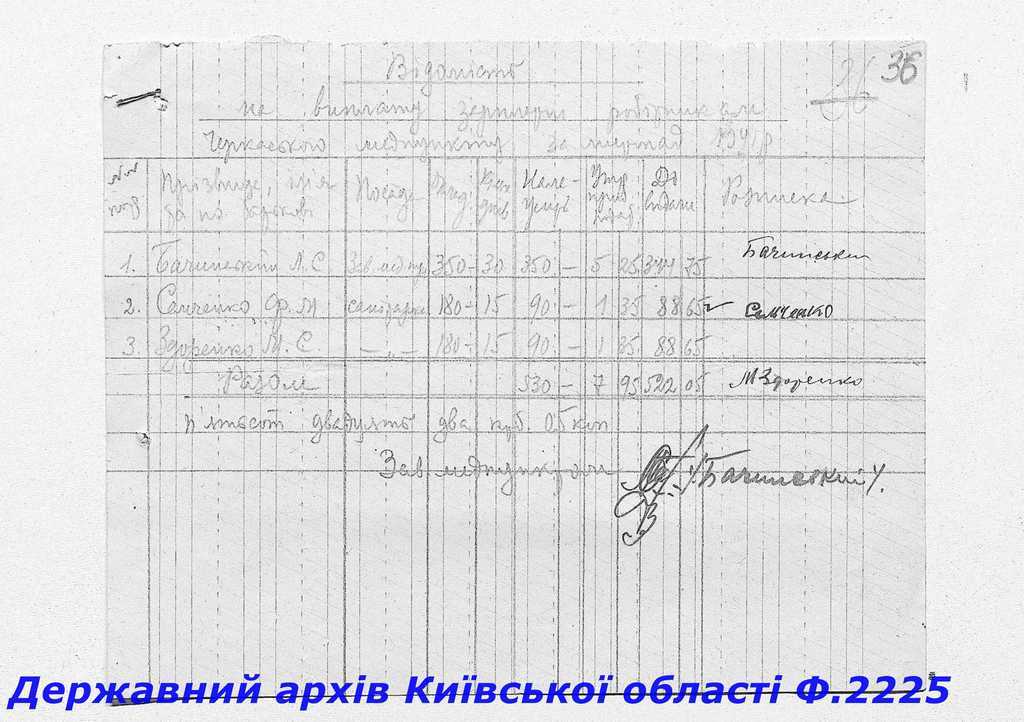 26 36
Відомість
на виплату зарплати робітникам
Черкаського медпункту за листопад 1941 р
№№ Прізвище, ім'я Посада Оклад. Кіль Нале- Утр До Розписка
п/п та по батькові днів жить приб видачі
подат
1. Бачинський Л.С Зав медпу 350 – 30 350 – 5 25 344 75 Бачинський
2. Семченко Ф. М санітарка 180 – 15 90 – 1 35 88 65 Семченко
3. Здоренко М. С — „ — 180 – 15 90 – 1 35 88 65
Разом 530 – 7 95 522 05 МЗдоренко
п'ятьсот двадцять два крб. 05 коп
Зав медпунктом /Бачинський/.
Державний архів Київської області Ф.2225